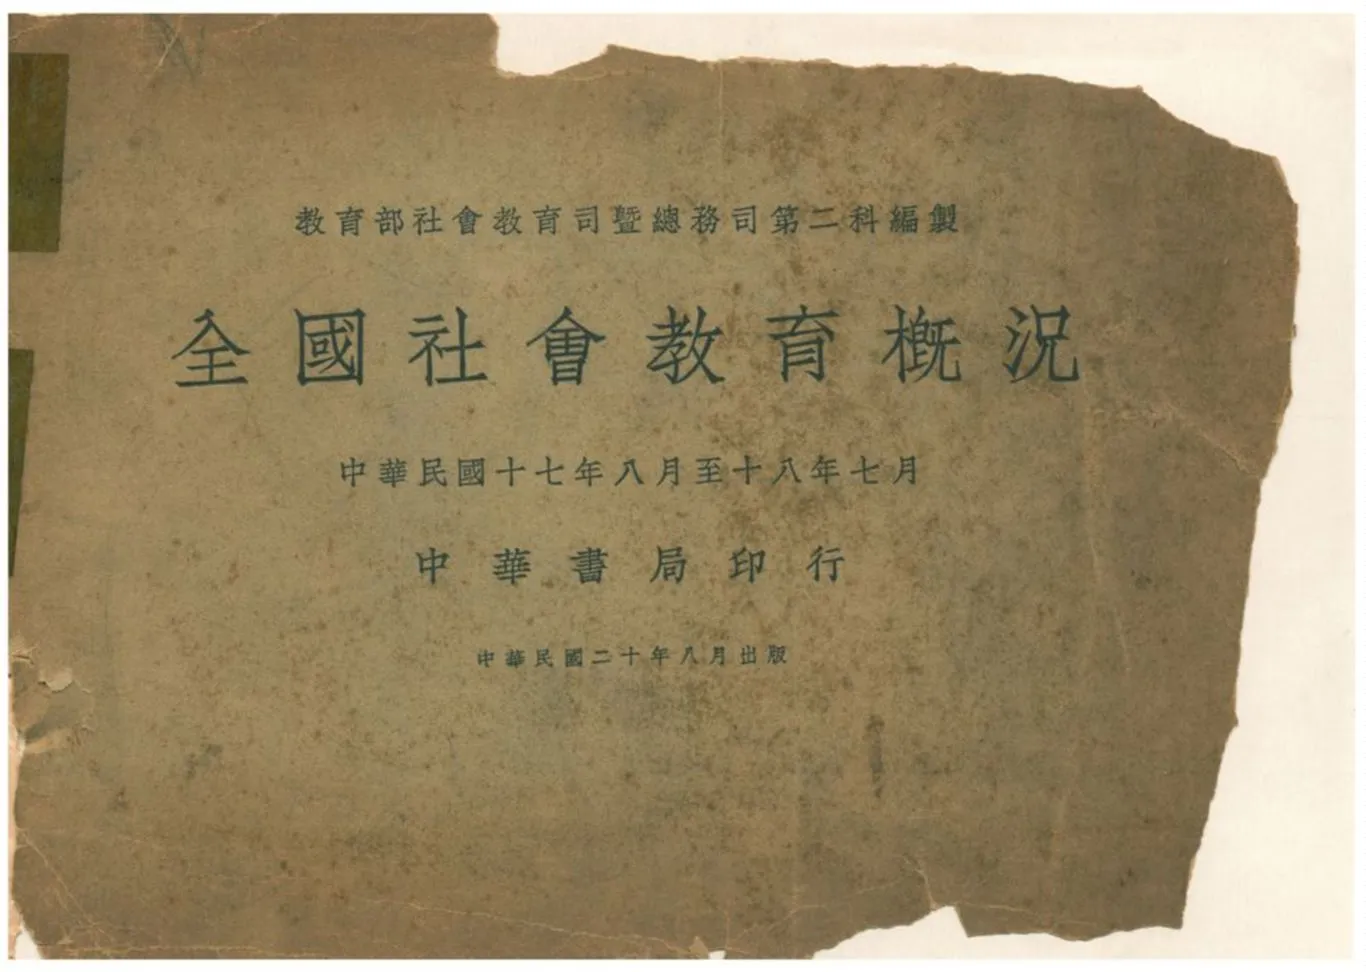 教育部社會教育司暨總務司第二科編製
全國社會教育概況
中華民國十七年八月至十八年七月
中華書局印行
中華民國二十年八月出版